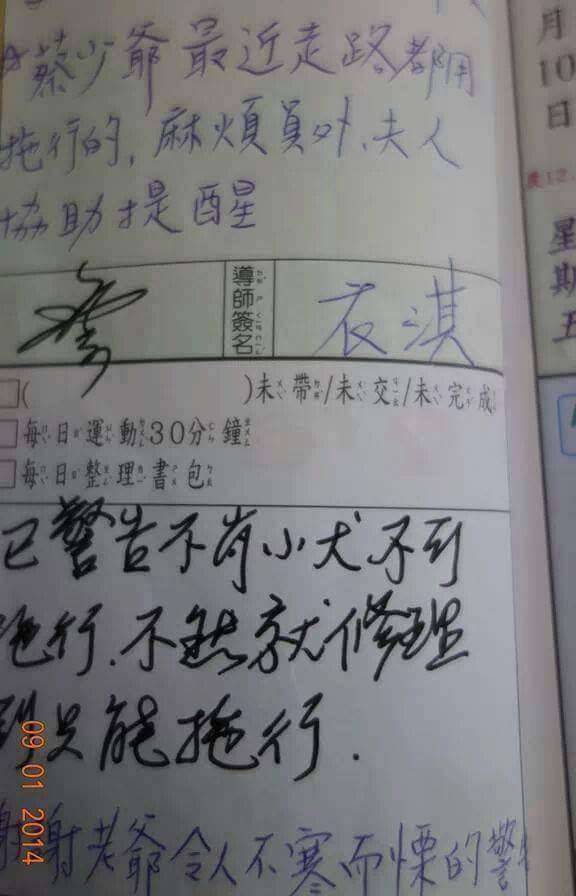 蔡少爺最近走路都用
拖行的,麻煩員外、夫人
協助提醒
導師簽名
衣淇
( )未帶/未交/未完成
每日運動30分鐘
每日整理書包
已警告不肖小犬不可
拖行.不然就修理
到只能拖行.
謝謝老爺令人不寒而慄的警告
月
10
日
星
期
五
09 01 2014